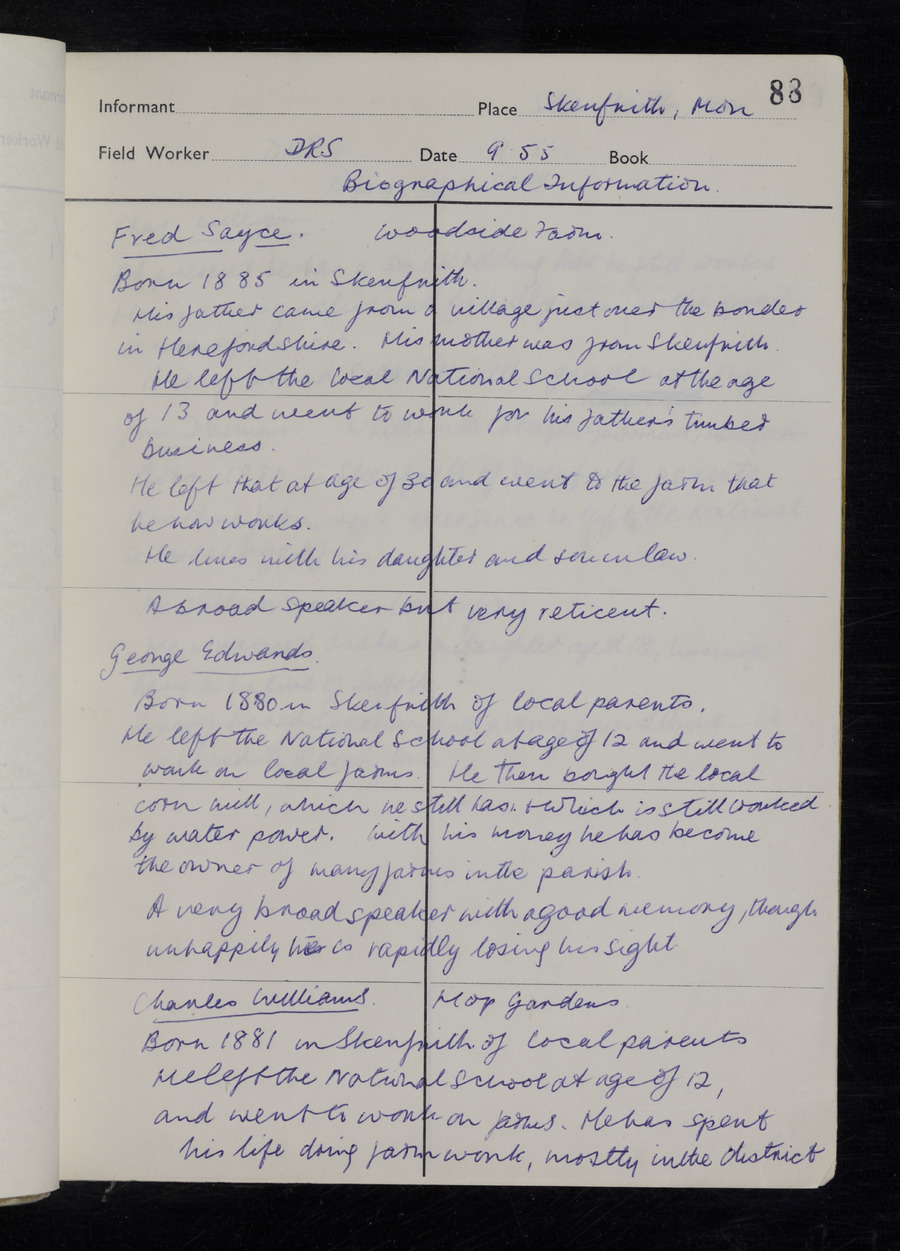 88
Informant Place Skenfrith, Mon
Field Worker DRS Date 9 55 Book
Biographical Information.
Fred Sayce. Woodside Farm.
Born 1885 in Skenfrith.
His father came from a village just over the border
in Herefordshire. His mother was from Skenfrith.
He left the local National School at the age
of 13 and went to work for his father's timber
business.
He left that at age of 30 and went to the farm that
he now works.
He lives with his daughter and son in law.
A broad speaker but very reticent.
George Edwards.
Born 1880 in Skenfrith of local parents.
He left the National School at age of 12 and went to
work on local farms. He then bought the local
corn mill, which he still has. & which is still worked
by water power. With his money he has become
the owner of many farms in the parish.
A very broad speaker with a good memory, though
unhappily he is rapidly losing his sight
Charles Williams. Hop Gardens.
Born 1881 in Skenfrith of local parents
He left the National School at age of 12,
and went to work on farms. He has spent
his life doing farm work, mostly in the district